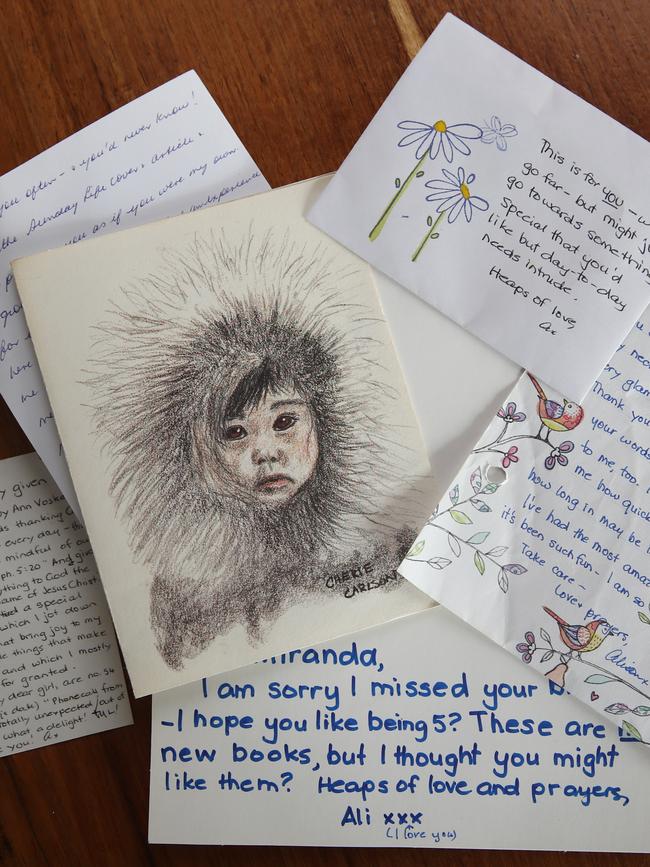 you often - & you'd never know!
the Sunday Life cover & article &
you as if you were my own
experience
This is for you - w
go far - but might ju
go towards something
special that you'd
like but day-to-day
needs intrude.
Heaps of love,
Ax
CHERIE
CARLSON
Thank you
your words
to me too. I
me how quick
how long in may be
I've had the most amaz
it's been such fun - I am so
Take care -
Love & prayers,
Alison x
y given
by Ann Voska
ds thanking G
every day - th
mindful of ou
ph. 5:20 - And give
ything to God the
ame of Jesus Christ
a special
which I jot down
hat bring joy to my
things that make
and which I mostly
for granted.
y dear girl, are no. 54
's date) "Phone call from
totally unexpected/out o
what a delight!
you! Ax
Miranda,
I am sorry I missed your b
- I hope you like being 5? These are
new books, but I thought you might
like them? Heaps of love and prayers,
Ali xxx
(I love you)